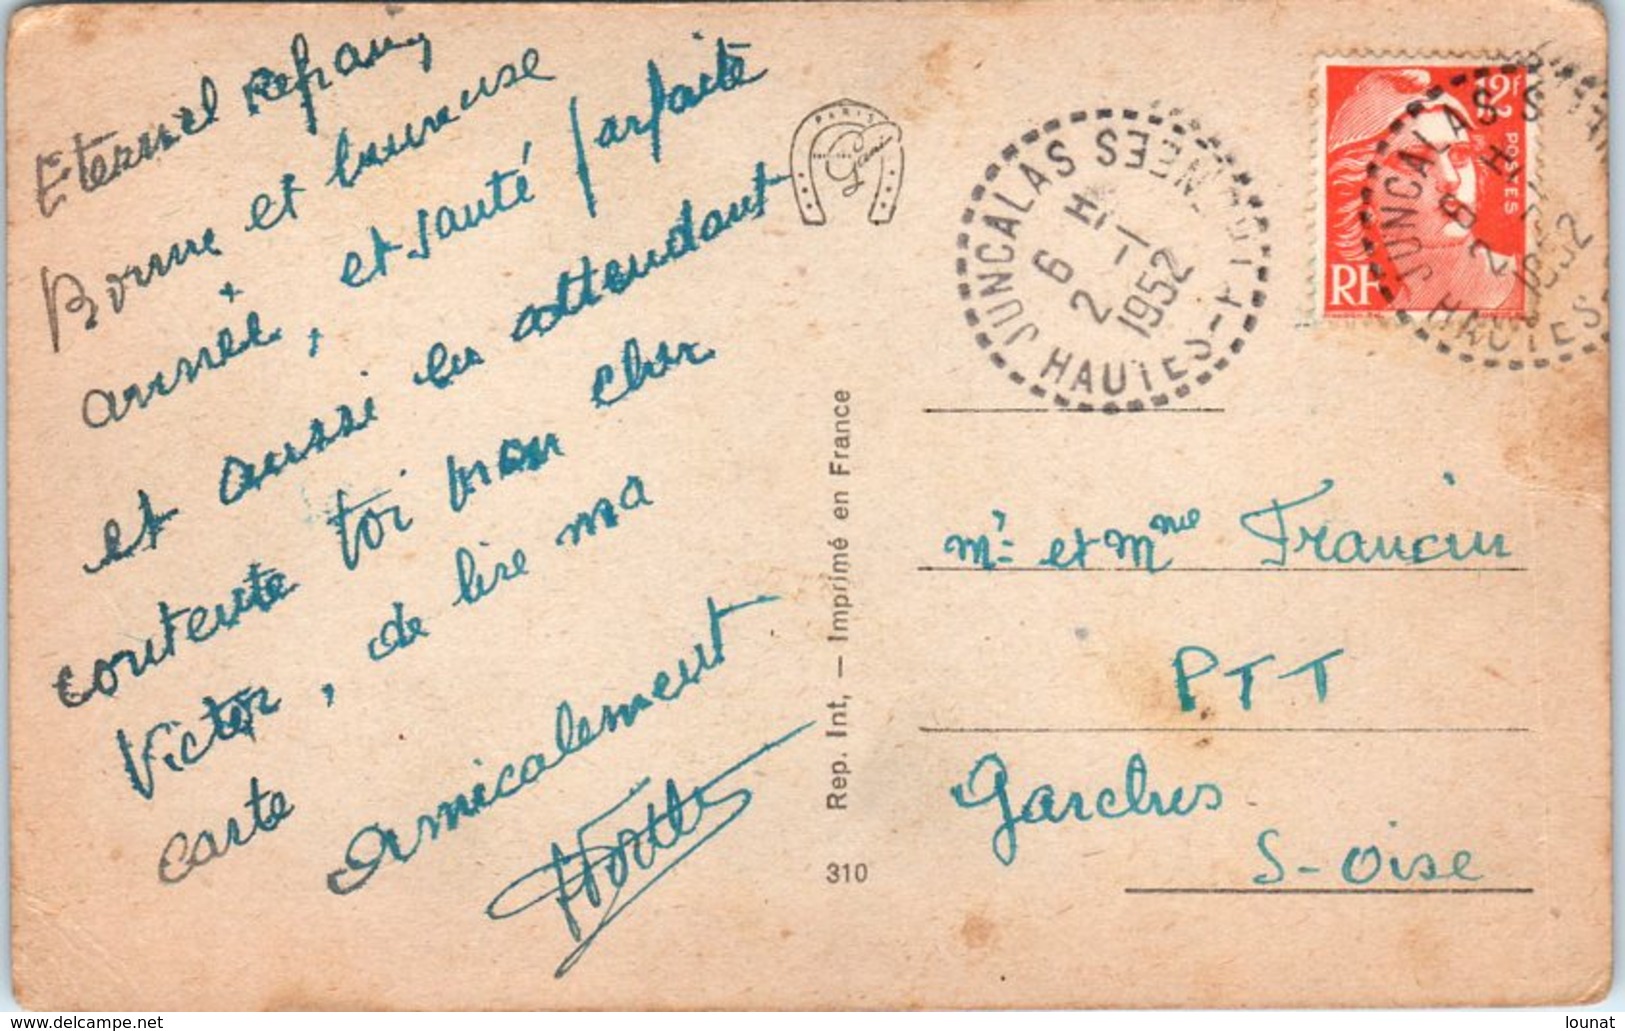 Eternel Refrain,
Bonne et heureuse
année, et santé parfaite
et aussi en attendant
contente toi mon cher
Victor, de lire ma
carte
Amicalement
PARIS
Gani
Rep. Int, — Imprimé en France
310
JUNCALAS HAUTES-PYRENEES
6 H
2 - 1
1952
12F
POSTES
RF
JUNCALAS HAUTES
8 H
2
1952
Mr et Mme Francin
PTT
Garches
S-Oise
www.delcampe.net
lounat